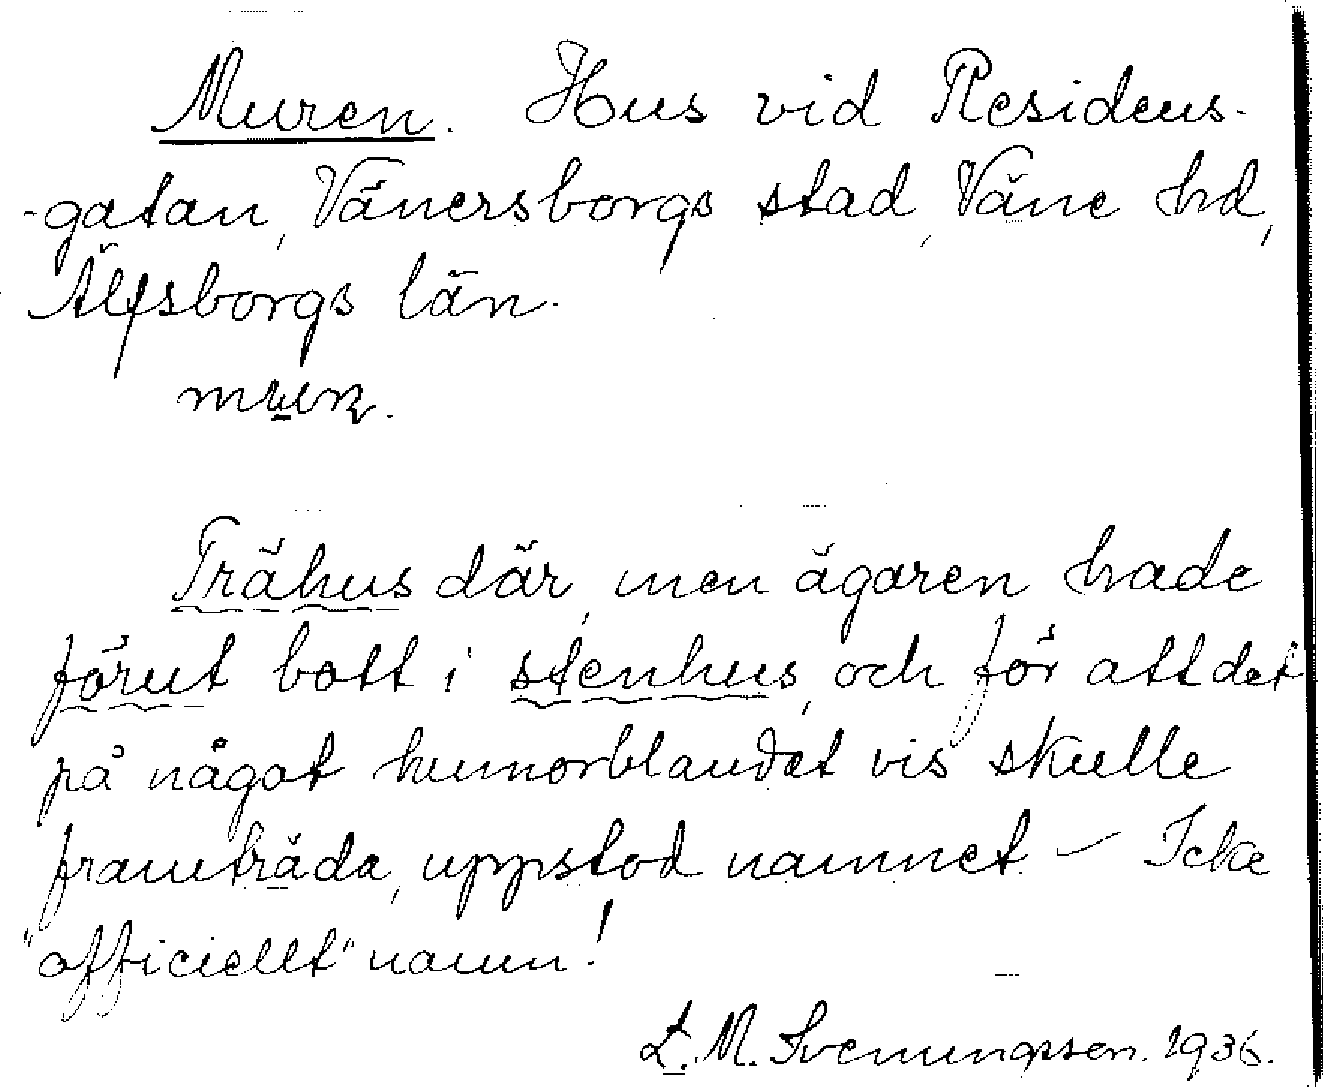 Muren. Hus vid Residens-
-gatan, Vänersborgs stad, Väne hd,
Älfsborgs län.
Trähus där, men ägaren hade
förut bott i stenhus, och för att det
på något humorblandat vis skulle
framträda, uppstod namnet – Icke
"officiellt" namn!
L. M. Svenungsson. 1936.